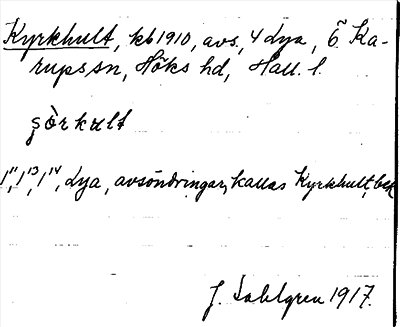 Kyrkhult, kb 1910, avs., 4 Lya, Ö. Ka-
rups sn, Höks hd, Hall. l.
şòrkult
1¹¹, 1¹³, 1¹⁴, Lya, avsöndringar, kallas Kyrkhult, bek
J. Dahlgren 1917.